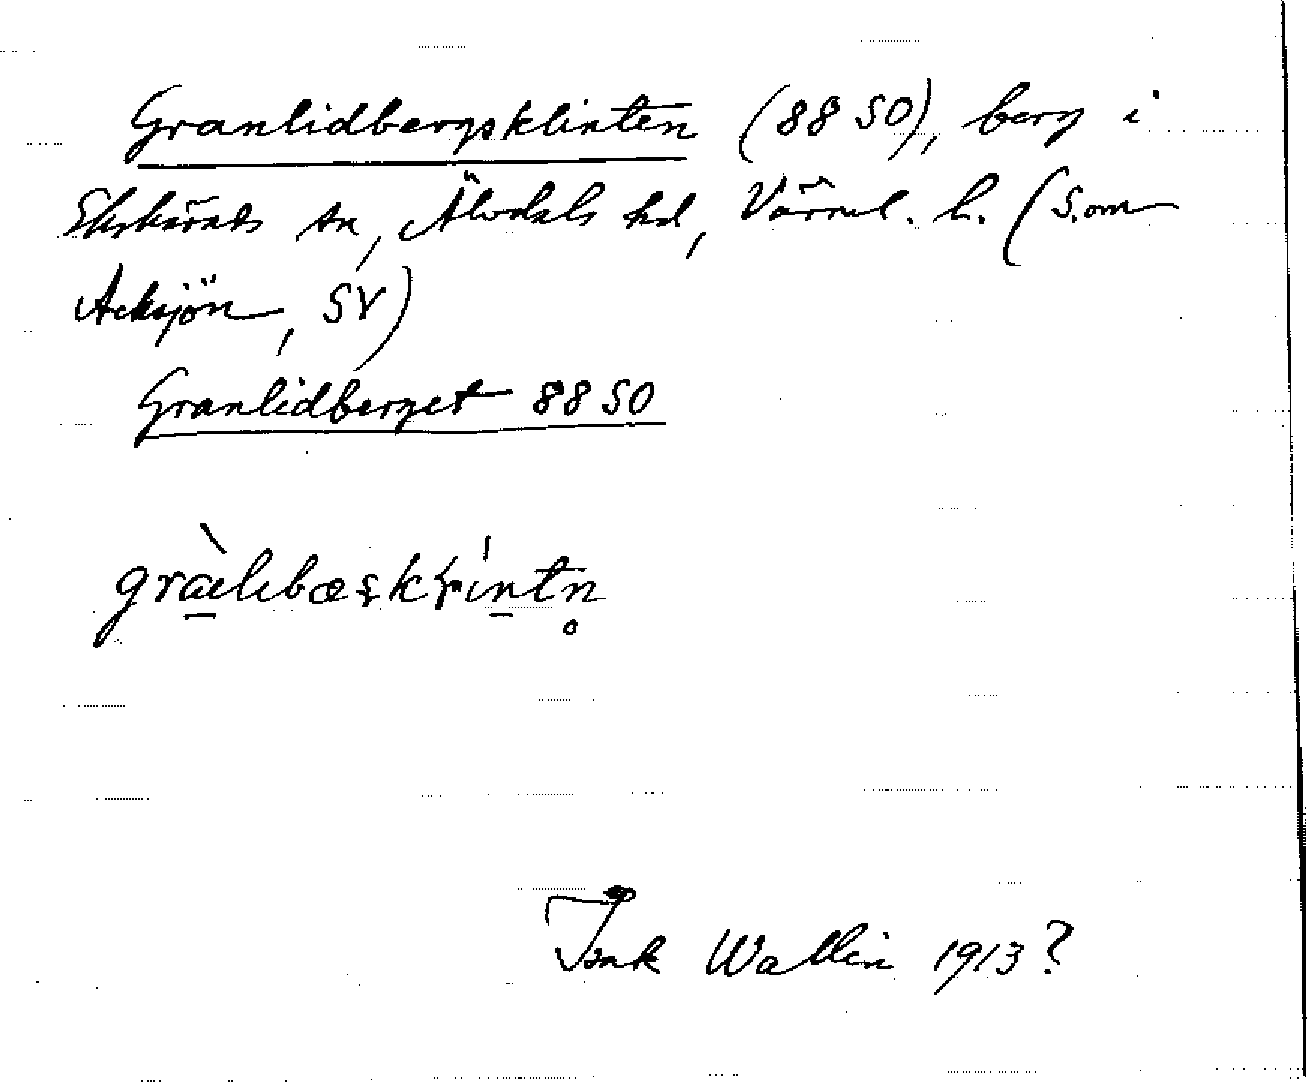 Granlidbergsklinten (88 SO), berg i
Ekshärads sn, Älvdals hd, Värml. l. (S.om
Acksjön, SV)
Granlidberget 88 SO
Isak Wallin 1913?